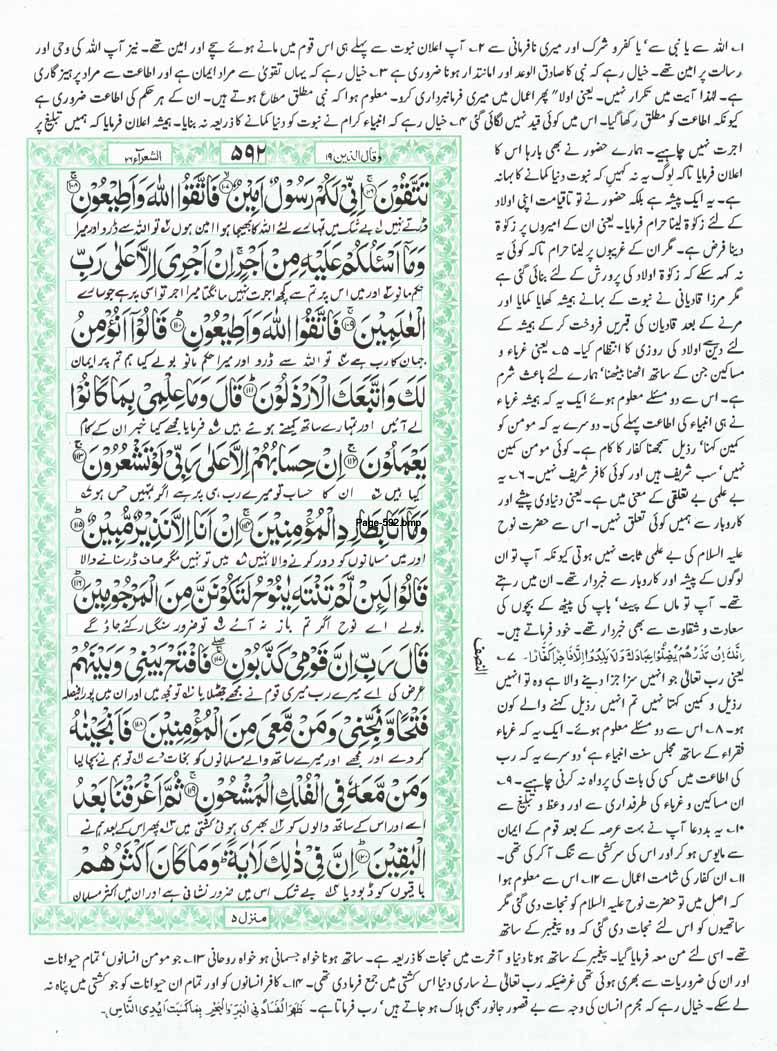 ۱؎ اللہ سے یا نبی سے‘ یا کفر و شرک اور میری نافرمانی سے ۲؎ آپ اعلان نبوت سے پہلے ہی اس قوم میں مانے ہوئے سچے اور امین تھے۔ نیز آپ اللہ کی وحی اور
رسالت پر امین تھے۔ خیال رہے کہ نبی کا صادق الوعد اور امانتدار ہونا ضروری ہے ۳؎ خیال رہے کہ یہاں تقویٰ سے مراد ایمان ہے اور اطاعت سے مراد پرہیز گاری
ہے۔ لہٰذا آیت میں تکرار نہیں۔ یعنی اولا" پھر اعمال میں میری فرمانبرداری کرو۔ معلوم ہوا کہ نبی مطلق مطاع ہوتے ہیں۔ ان کے ہر حکم کی اطاعت ضروری ہے
کیونکہ اطاعت کو مطلق رکھا گیا۔ اس میں کوئی قید نہیں لگائی گئی ۴؎ خیال رہے کہ انبیاء کرام نے نبوت کو دنیا کمانے کا ذریعہ نہ بنایا۔ ہمشہ اعلان فرمایا کہ ہمیں تبلیغ پر
وقال الذین ۱۹
۵۹۲
الشعراء ۲۶
تَتَّقُوْنَ ۚ اِنِّیْ لَكُمْ رَسُوْلٌ اَمِیْنٌ ۙ فَاتَّقُوا اللّٰهَ وَاَطِیْعُوْنِ ۚ
ڈرتے نہیں ۱؎ بے شک میں تمہارے لئے اللہ کا بھیجا ہوا امین ہوں ۲؎ تو اللہ سے ڈرو اور میرا
وَمَاۤ اَسْـَٔلُكُمْ عَلَیْهِ مِنْ اَجْرٍ ۚ اِنْ اَجْرِیَ اِلَّا عَلٰی رَبِّ
حکم مانو ۳؎ اور میں اس پر تم سے کچھ اجرت نہیں مانگتا میرا اجر تو اسی پر ہے جو سارے
الْعٰلَمِیْنَ ۚ فَاتَّقُوا اللّٰهَ وَاَطِیْعُوْنِ ؕ قَالُوْۤا اَنُؤْمِنُ
جہان کا رب ہے ۴؎ تو اللہ سے ڈرو اور میرا حکم مانو بولے کیا ہم تم پر ایمان
لَكَ وَاتَّبَعَكَ الْاَرْذَلُوْنَ ؕ قَالَ وَمَا عِلْمِیْ بِمَا كَانُوْا
لے آئیں اور تمہارے ساتھ کمینے ہوئے ہیں ۵؎ فرمایا مجھے کیا خبر ان کے کام
یَعْمَلُوْنَ ۚ اِنْ حِسَابُهُمْ اِلَّا عَلٰی رَبِّیْ لَوْ تَشْعُرُوْنَ ۚ
کیا ہیں ۶؎ ان کا حساب تو میرے رب ہی پر ہے اگر تمہیں حس ہو ۷؎
وَمَاۤ اَنَا بِطَارِدِ الْمُؤْمِنِیْنَ ۚ اِنْ اَنَا اِلَّا نَذِیْرٌ مُّبِیْنٌ ؕ
Page-592.bmp
اور میں مسلمانوں کو دور کرنے والا نہیں ۸؎ میں تو نہیں مگر صاف ڈر سنانے والا
قَالُوْا لَىِٕنْ لَّمْ تَنْتَهِ یٰنُوْحُ لَتَكُوْنَنَّ مِنَ الْمَرْجُوْمِیْنَ ؕ
بولے اے نوح اگر تم باز نہ آئے ۹؎ تو ضرور سنگسار کئے جاؤ گے
قَالَ رَبِّ اِنَّ قَوْمِیْ كَذَّبُوْنِ ۖ فَافْتَحْ بَیْنِیْ وَبَیْنَهُمْ
عرض کی اے میرے رب میری قوم نے مجھے جھٹلایا ۱۰؎ تو مجھ میں اور ان میں پورا فیصلہ
فَتْحًا وَّنَجِّنِیْ وَمَنْ مَّعِیَ مِنَ الْمُؤْمِنِیْنَ فَاَنْجَیْنٰهُ
کر دے اور مجھے اور میرے ساتھ والے مسلمانوں کو نجات دے ۱۱؎ تو ہم نے بچا لیا
وَمَنْ مَّعَهٗ فِی الْفُلْكِ الْمَشْحُوْنِ ۚ ثُمَّ اَغْرَقْنَا بَعْدُ
اسے اور اس کے ساتھ والوں کو ۱۲؎ بھری ہوئی کشتی میں ۱۳؎ پھر اس کے بعد ہم نے
الْبٰقِیْنَ ؕ اِنَّ فِیْ ذٰلِكَ لَاٰیَةً ؕ وَمَا كَانَ اَكْثَرُهُمْ
باقیوں کو ڈبو دیا ۱۴؎ بے شک اس میں ضرور نشانی ہے اور ان میں اکثر مسلمان
منزل ۵
النصف
اجرت نہیں چاہیے۔ ہمارے حضور نے بھی بارہا اس کا
اعلان فرمایا تاکہ لوگ یہ نہ کہیں کہ نبوت دنیا کمانے کا بہانہ
ہے۔ یہ ایک پیشہ ہے بلکہ حضور نے تو تاقیامت اپنی اولاد
کے لئے زکوٰۃ لینا حرام فرمایا۔ یعنی ان کے امیروں پر زکوٰۃ
دینا فرض ہے۔ مگر ان کے غریبوں پر لینا حرام تاکہ کوئی یہ
نہ کہہ سکے کہ زکوٰۃ اولاد کی پرورش کے لئے بنائی گئی ہے
مگر مرزا قادیانی نے نبوت کے بہانے ہمیشہ کھایا کمایا اور
مرنے کے بعد قادیان کی قبریں فروخت کر کے ہمیشہ کے
لئے اولاد کی روزی کا انتظام کیا۔ ۵؎ یعنی غرباء و
مساکین جن کے ساتھ اٹھنا بیٹھنا‘ ہمارے لئے باعث شرم
ہے۔ اس سے دو مسئلے معلوم ہوئے ایک یہ کہ ہمیشہ غرباء
نے ہی انبیاء کی اطاعت پہلے کی۔ دوسرے یہ کہ مومن کو
کمین کہنا‘ رذیل سمجھنا کفار کا کام ہے۔ کوئی مومن کمین
نہیں‘ سب شریف ہیں اور کوئی کافر شریف نہیں۔ ۶؎ یہ
بے علمی بے تعلقی کے معنی میں ہے۔ یعنی دنیاوی پیشے اور
کاروبار سے ہمیں کوئی تعلق نہیں۔ اس سے حضرت نوح
علیہ السلام کی بے علمی ثابت نہیں ہوتی کیونکہ آپ تو ان
لوگوں کے پیشہ اور کاروبار سے خبردار تھے۔ ان میں رہتے
تھے۔ آپ تو ماں کے پیٹ‘ باپ کی پیٹھ کے بچوں کی
سعادت و شقاوت سے بھی خبردار تھے۔ خود فرماتے ہیں۔
اِنَّكَ اِنْ تَذَرْهُمْ یُضِلُّوْا عِبَادَكَ وَلَا یَلِدُوْۤا اِلَّا فَاجِرًا كَفَّارًا۔ ۷؎
یعنی رب تعالیٰ جو انہیں سزا جزا دینے والا ہے وہ تو انہیں
رذیل و کمین کہتا نہیں تم انہیں رذیل کہنے والے کون
ہو۔ ۸؎ اس سے دو مسئلے معلوم ہوئے۔ ایک یہ کہ غرباء
فقراء کے ساتھ مجلس سنت انبیاء ہے‘ دوسرے یہ کہ رب
کی اطاعت میں کسی کی بات کی پرواہ نہ کرنی چاہیے۔ ۹؎
ان مساکین و غرباء کی طرفداری سے اور وعظ و تبلیغ سے
۱۰؎ یہ بددعا آپ نے بہت عرصہ کے بعد قوم کے ایمان
سے مایوس ہو کر اور اس کی سرکشی سے تنگ آ کر کی تھی۔
۱۱؎ ان کفار کی شامت اعمال سے ۱۲؎ اس سے معلوم ہوا
کہ اصل میں تو حضرت نوح علیہ السلام کو نجات دی گئی مگر
ساتھیوں کو اس لئے نجات دی گئی کہ وہ پیغمبر کے ساتھ
تھے۔ اسی لئے من معہ فرمایا گیا۔ پیغمبر کے ساتھ ہونا دنیا و آخرت میں نجات کا ذریعہ ہے۔ ساتھ ہونا خواہ جسمانی ہو خواہ روحانی ۱۳؎ جو مومن انسانوں‘ تمام حیوانات
اور ان کی ضروریات سے بھری ہوئی تھی غرضیکہ رب تعالیٰ نے ساری دنیا اس کشتی میں جمع فرما دی تھی۔ ۱۴؎ کافر انسانوں کو اور تمام ان حیوانات کو جو کشتی میں پناہ نہ
لے سکے۔ خیال رہے کہ مجرم انسان کی وجہ سے بے قصور جانور بھی ہلاک ہو جاتے ہیں‘ رب فرماتا ہے۔ ظَهَرَ الْفَسَادُ فِی الْبَرِّ وَالْبَحْرِ بِمَا كَسَبَتْ اَیْدِی النَّاسِ۔